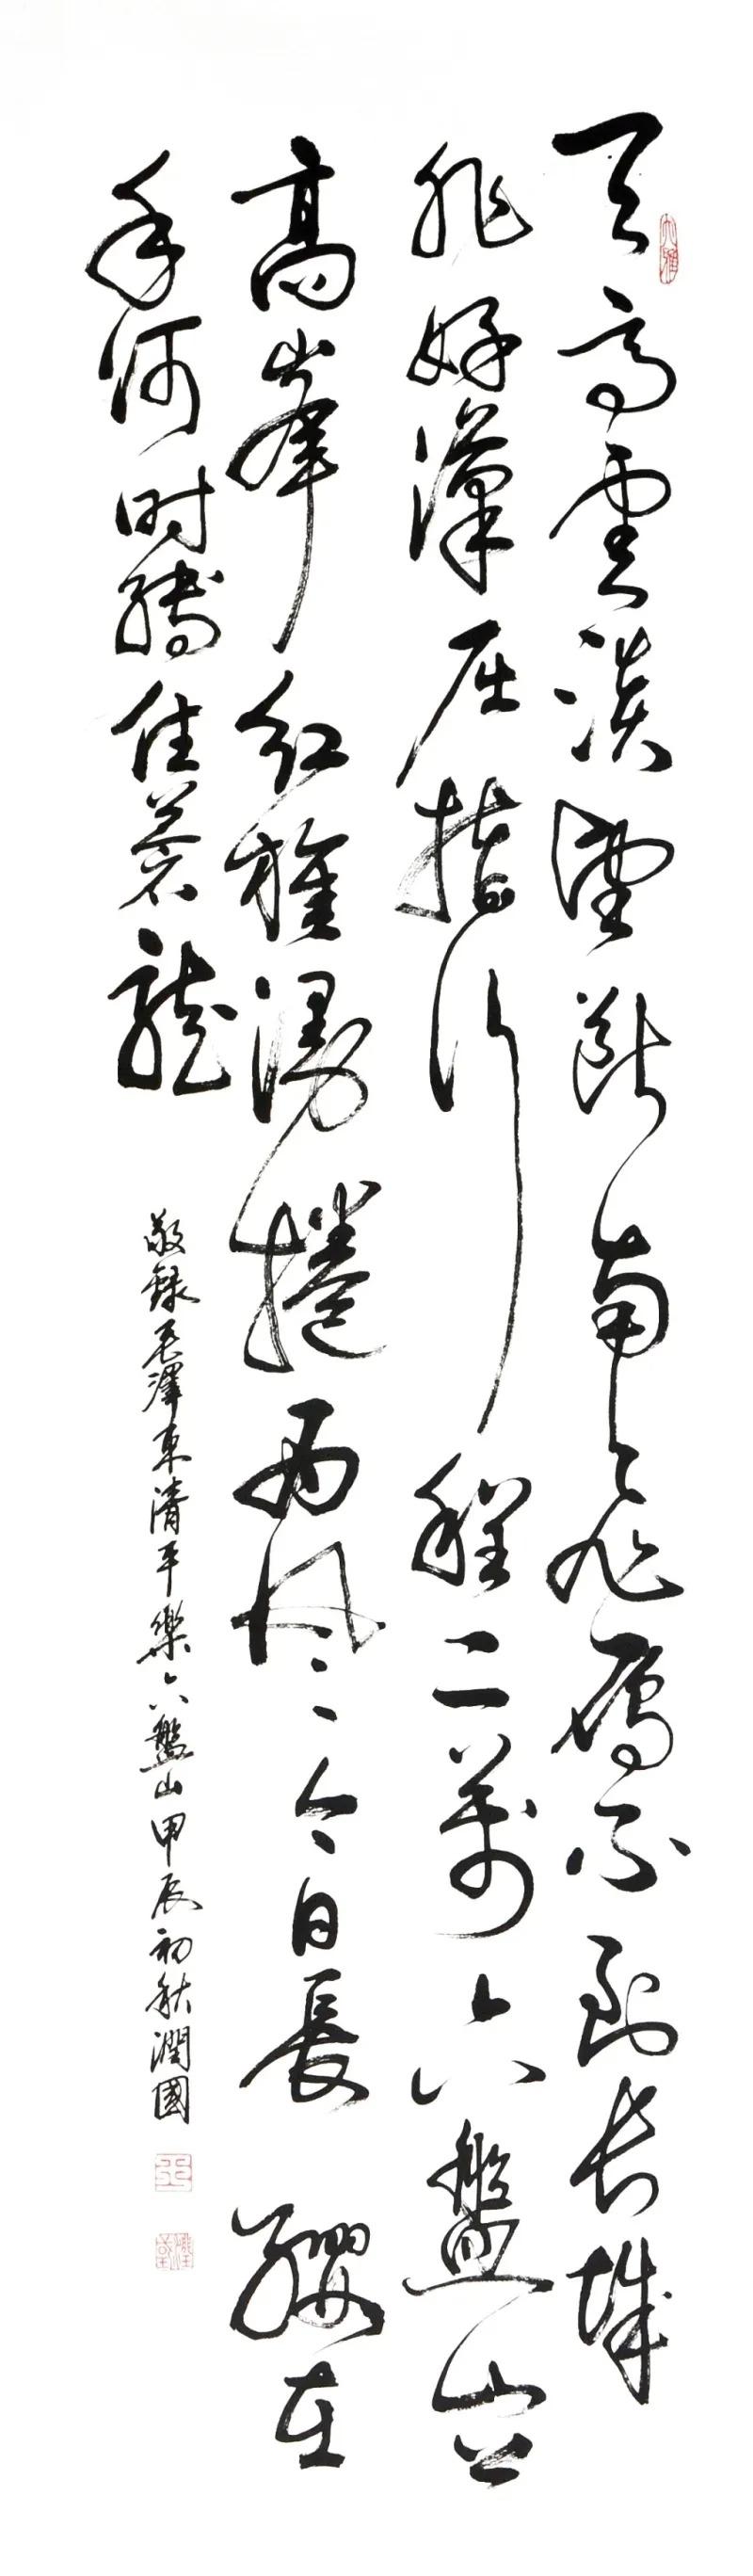 大雅
天高雲淡望斷南飛雁不到长城
非好漢屈指行程二萬六盤山上
高峯紅旗漫捲西風今日長纓在
手何时縛住蒼龍
敬録毛澤東清平樂六盤山甲辰初秋潤國